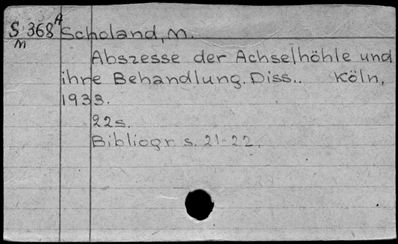 S 368 A Scholand, M.
M
Abszesse der Achselhöhle und
ihre Behandlung. Diss.. Köln,
1933.
22s.
Bibliogr. s. 21-22.